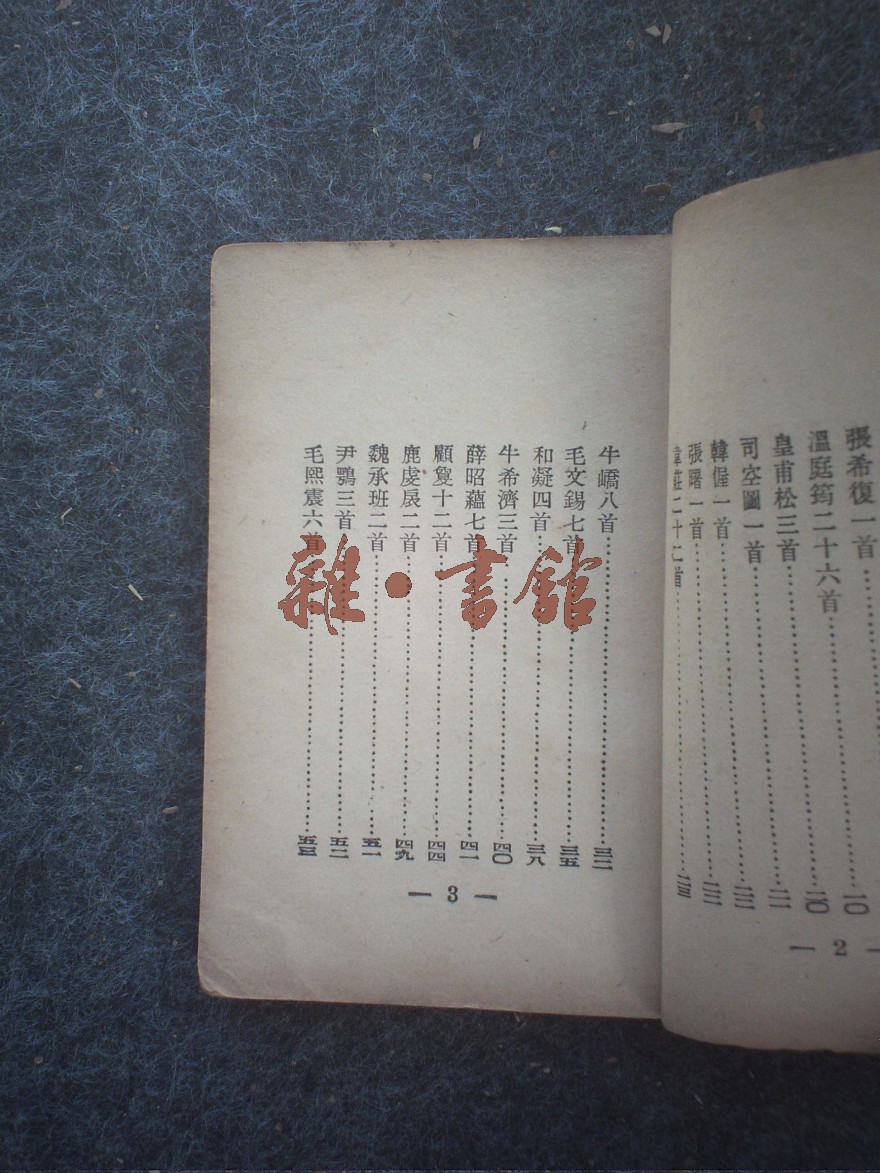 張希復一首……………一〇
溫庭筠二十六首……………一〇
皇甫松三首……………二一
司空圖一首……………二二
韓偓一首……………二二
張曙一首
韋莊二十二首……………二三
— 2 —
牛嶠八首……………三二
毛文錫七首……………三五
和凝四首……………三八
牛希濟三首……………四〇
薛昭蘊七首……………四一
顧敻十二首……………四四
鹿虔扆二首……………四九
魏承班二首……………五一
尹鶚三首……………五二
毛熙震六首……………五三
— 3 —
雜·書館